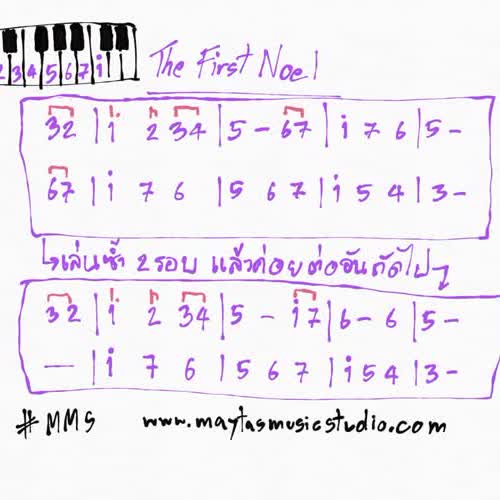 The First Noel
234567i
32 | i 2 34 | 5 - 67 | i 7 6 | 5 -
67 | i 7 6 | 5 6 7 | i 5 4 | 3 -
↳เล่นซ้ำ 2 รอบ แล้วค่อยต่ออันถัดไป
32 | i 2 34 | 5 - i7 | 6 - 6 | 5 -
— | i 7 6 | 5 6 7 | i 5 4 | 3 -
#MMS www.maytasmusicstudio.com